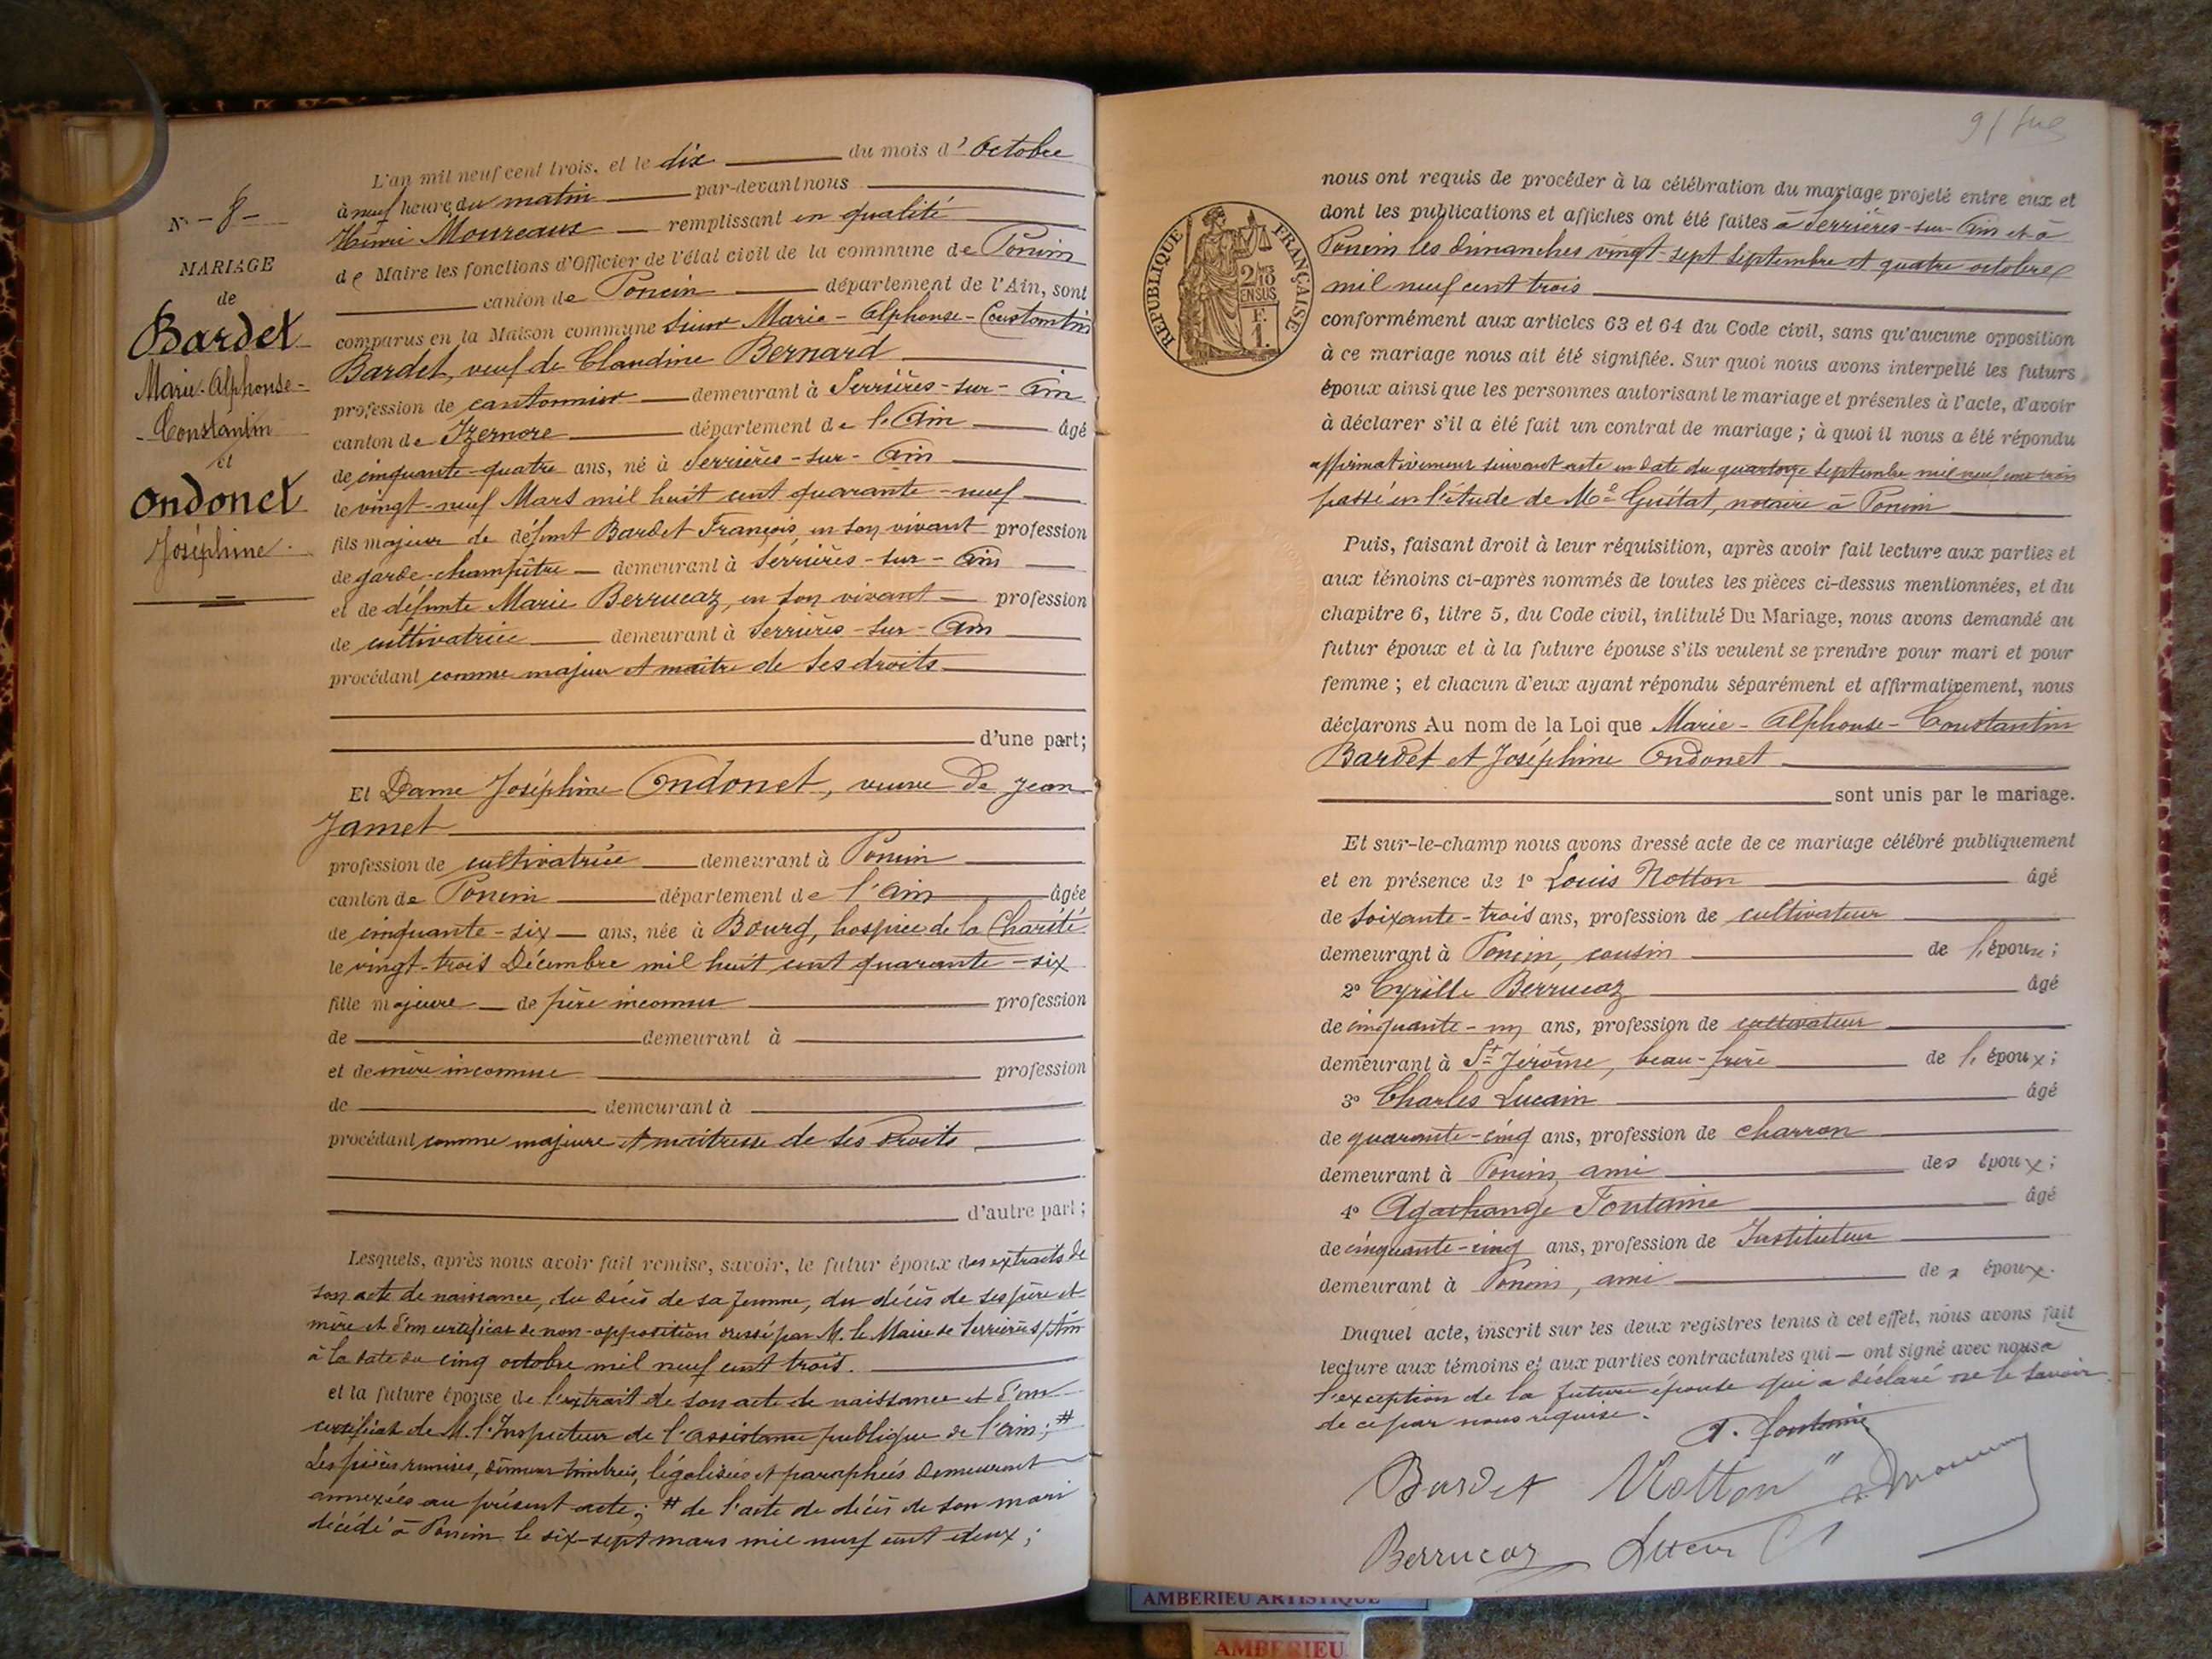 L'an mil neuf cent trois, et le dix du mois d'octobre
à neuf heure du matin par-devant nous
Henri Moureaux remplissant en qualité
de Maire les fonctions d'Officier de l'état civil de la commune de Poncin
canton de Poncin département de l'Ain, sont
comparus en la Maison commune sieur Marie-Alphonse-Constantin
Bardet, veuf de Claudine Bernard
profession de cantonnier demeurant à Serrières-sur-Ain
canton de Izernore département de l'Ain âgé
de cinquante-quatre ans, né à Serrières-sur-Ain
le vingt-neuf Mars mil huit cent quarante-neuf
fils majeur de défunt Bardet François, en son vivant profession
de garde-champêtre demeurant à Serrières-sur-Ain
et de défunte Marie Berrucaz, en son vivant profession
de cultivatrice demeurant à Serrières-sur-Ain
procédant comme majeur et maître de ses droits
d'une part;
Et Dame Joséphine Ondonet, veuve de Jean
Jamet
profession de cultivatrice demeurant à Poncin
canton de Poncin département de l'Ain âgée
de cinquante-six ans, née à Bourg, hospice de la Charité
le vingt-trois Décembre mil huit cent quarante-six
fille majeure de père inconnu profession
de demeurant à
et de mère inconnue profession
de demeurant à
procédant comme majeure et maîtresse de ses droits
d'autre part;
Lesquels, après nous avoir fait remise, savoir, le futur époux des extraits de
son acte de naissance, du décès de sa femme, du décès de ses père et
mère et d'un certificat de non-opposition dressé par M. le Maire de Serrières s/Ain
à la date du cinq octobre mil neuf cent trois.
et la future épouse de l'extrait de son acte de naissance et d'un
certificat de M. l'Inspecteur de l'assistance publique de l'Ain; #
Les pièces remises, dûment timbrées, légalisées et paraphées demeureront
annexées au présent acte; # de l'acte de décès de son mari
décédé à Poncin le six-sept mars mil neuf cent deux;
N° - 8 -
MARIAGE
de
Bardet
Marie-Alphonse-
-Constantin
et
Ondonet
Joséphine
nous ont requis de procéder à la célébration du mariage projeté entre eux et
dont les publications et affiches ont été faites à Serrières-sur-Ain et à
Poncin les dimanches vingt-sept septembre et quatre octobre
mil neuf cent trois
conformément aux articles 63 et 64 du Code civil, sans qu'aucune opposition
à ce mariage nous ait été signifiée. Sur quoi nous avons interpellé les futurs
époux ainsi que les personnes autorisant le mariage et présentes à l'acte, d'avoir
à déclarer s'il a été fait un contrat de mariage; à quoi il nous a été répondu
affirmativement suivant acte en date du quatorze septembre mil neuf cent trois
passé en l'étude de Me Guétat, notaire à Poncin
Puis, faisant droit à leur réquisition, après avoir fait lecture aux parties et
aux témoins ci-après nommés de toutes les pièces ci-dessus mentionnées, et du
chapitre 6, titre 5, du Code civil, intitulé Du Mariage, nous avons demandé au
futur époux et à la future épouse s'ils veulent se prendre pour mari et pour
femme; et chacun d'eux ayant répondu séparément et affirmativement, nous
déclarons Au nom de la Loi que Marie-Alphonse-Constantin
Bardet et Joséphine Ondonet
sont unis par le mariage.
Et sur-le-champ nous avons dressé acte de ce mariage célébré publiquement
et en présence de 1° Louis Notton âgé
de soixante-trois ans, profession de cultivateur
demeurant à Poncin, cousin de l'épouse;
2° Cyrille Berrucaz âgé
de cinquante-un ans, profession de cultivateur
demeurant à St Jérôme, beau-frère de l'époux;
3° Charles Lucain âgé
de quarante-cinq ans, profession de charron
demeurant à Poncin, ami des époux;
4° Agathange Fontaine âgé
de cinquante-cinq ans, profession de Instituteur
demeurant à Poncin, ami des époux.
Duquel acte, inscrit sur les deux registres tenus à cet effet, nous avons fait
lecture aux témoins et aux parties contractantes qui ont signé avec nous à
l'exception de la future épouse qui a déclaré ne le savoir
de ce par nous requise.
A. Fontaine
Bardet Notton
Berrucaz
RÉPUBLIQUE FRANÇAISE
AMBERIEU ARTISTIQUE
AMBERIEU